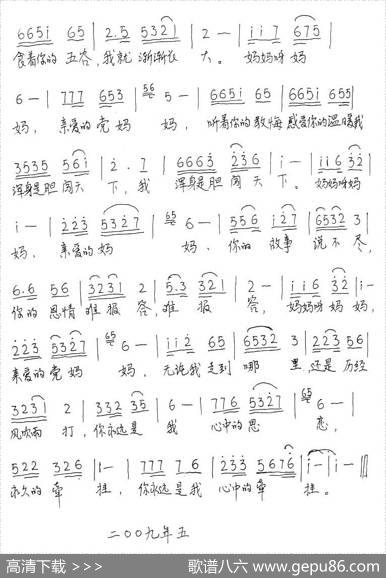 6665i 65 | 2.5 5321 | 2 — | i i 7 675 |
食着你的 五谷,我就 渐渐长 大。 妈妈呀 妈
6 — | 777 653 | 56 5 — | 6651 65 | 6651 655 |
妈, 亲爱的 党 妈 妈, 听着你的 教悔 感爱你的 温暖我
3535 561 | 2 . 7 | 6663 236 | i — | i i6 32 |
浑身是胆 闯天 下, 我 浑身是胆 闯 天 下。 妈妈呀妈
i — | 223 5327 | 65 6 — | 556 i27 | 6532 3 |
妈, 亲爱的 妈 妈, 你的 故事 说不 尽,
6.6 56 | 3231 2 | 5.3 321 | 2 — | i i6 32 | i—
你的 恩情 难报 答,难 报 答, 妈妈呀妈 妈,
223 5327 | 65 6 — | i i2 65 | 6532 3 | 223 56 |
亲爱的 党妈 妈, 无论我 走到 哪 里,还是 历经
3231 2 | 332 35 | 6 — | 776 5327 | 65 6 — |
风吹雨 打,你永远是 我 心中的 思 恋,
522 326 | 1— | 777 76 | 233 5676 | i — i — ‖
永久的 牵 挂, 你永远 是我 心中的 牵 挂。
二〇〇九年五
高清下载 >>> 歌谱八六 www.gepu86.com